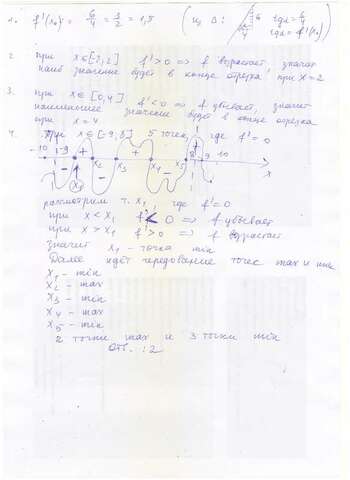 1. f'(x₀) = 6/4 = 3/2 = 1,5 ( из Δ: 6 4 tg α = 6/4 tg α = f'(x₀)
2. при x ∈ [-2; 2] f' > 0 => f возрастает, значит
наиб значение будет в конце отрезка при x = 2
3. при x ∈ [0, 4] f' < 0 => f убывает, значит
наименьшее значение будет в конце отрезка
при x = 4
4. При x ∈ [-9; 8] 5 точек, где f' = 0
-10 -9 + x₂ + x₄ + 8 9 10
- x₁ - x₃ - x₅ x
рассмотрим т. x₁, где f' = 0
при x < x₁ f' < 0 => f убывает
при x > x₁ f' > 0 => f возрастает
значит x₁ - точка min
Далее идёт чередование точек max и min
x₁ - min
x₂ - max
x₃ - min
x₄ - max
x₅ - min
2 точки max и 3 точки min
отв. : 2